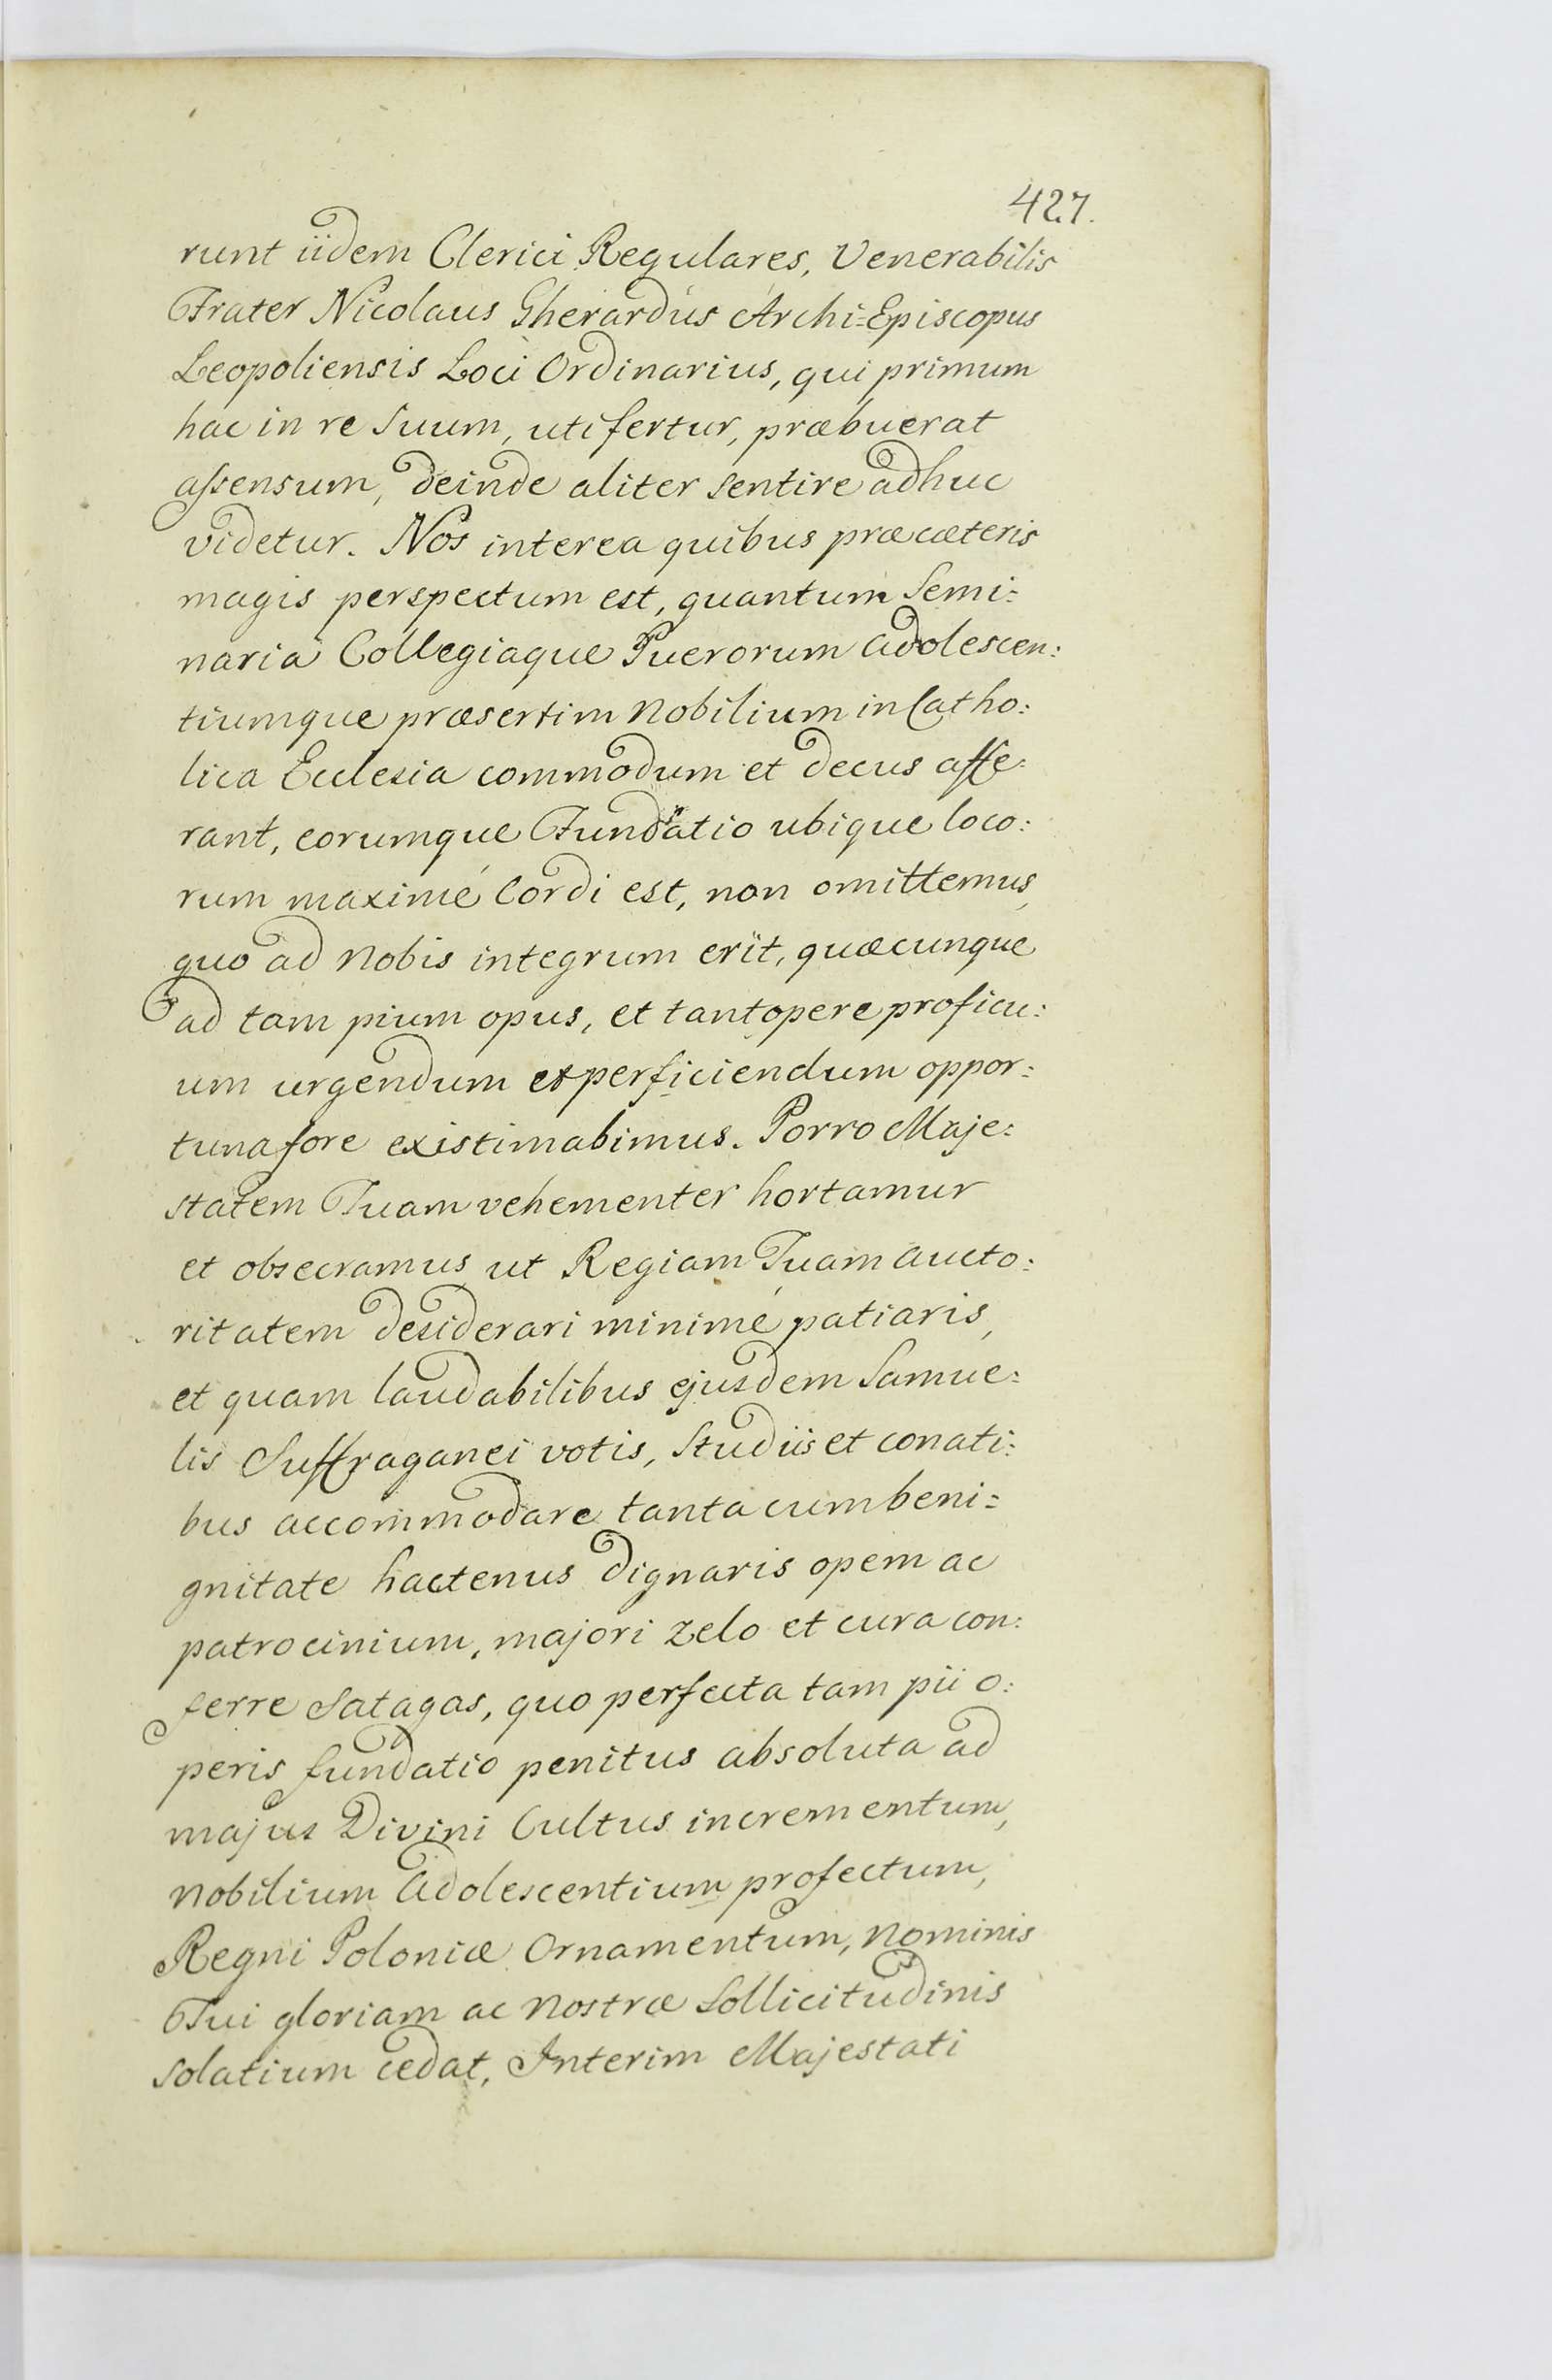 427.
runt iidem Clerici Regulares, Venerabilis
Frater Nicolaus Gherardus Archi=Episcopus
Leopoliensis Loci Ordinarius, qui primum
hac in re Suum, uti fertur, præbuerat
assensum, deinde aliter sentire adhuc
videtur. Nos interea quibus præ cæteris
magis perspectum est, quantum Semi=
naria Collegiaque Puerorum adolescen:
tiumque præsertim Nobilium in Catho:
lica Ecclesia commodum et decus affe:
rant, eorumque Fundatio ubique loco:
rum maximé Cordi est, non omittemus,
quo ad Nobis integrum erit, quæcunque
ad tam pium opus, et tantopere proficu:
um urgendum et perficiendum oppor:
tuna fore existimabimus. Porro Maje:
statem Tuam vehementer hortamur
et obsecramus, ut Regiam Tuam aucto:
ritatem desiderari minimé patiaris,
et quam laudabilibus ejusdem Samue:
lis Suffraganei votis, Studiis et conati:
bus accommodare tanta cum beni=
gnitate hactenus dignaris opem ac
patrocinium, majori zelo et cura con:
ferre Satagas, quo perfecta tam pii o:
peris fundatio penitus absoluta ad
majus Divini Cultus incrementum,
Nobilium Adolescentium profectum,
Regni Poloniæ Ornamentum, Nominis
Tui gloriam ac Nostræ Sollicitudinis
solatium cedat, Interim Majestati